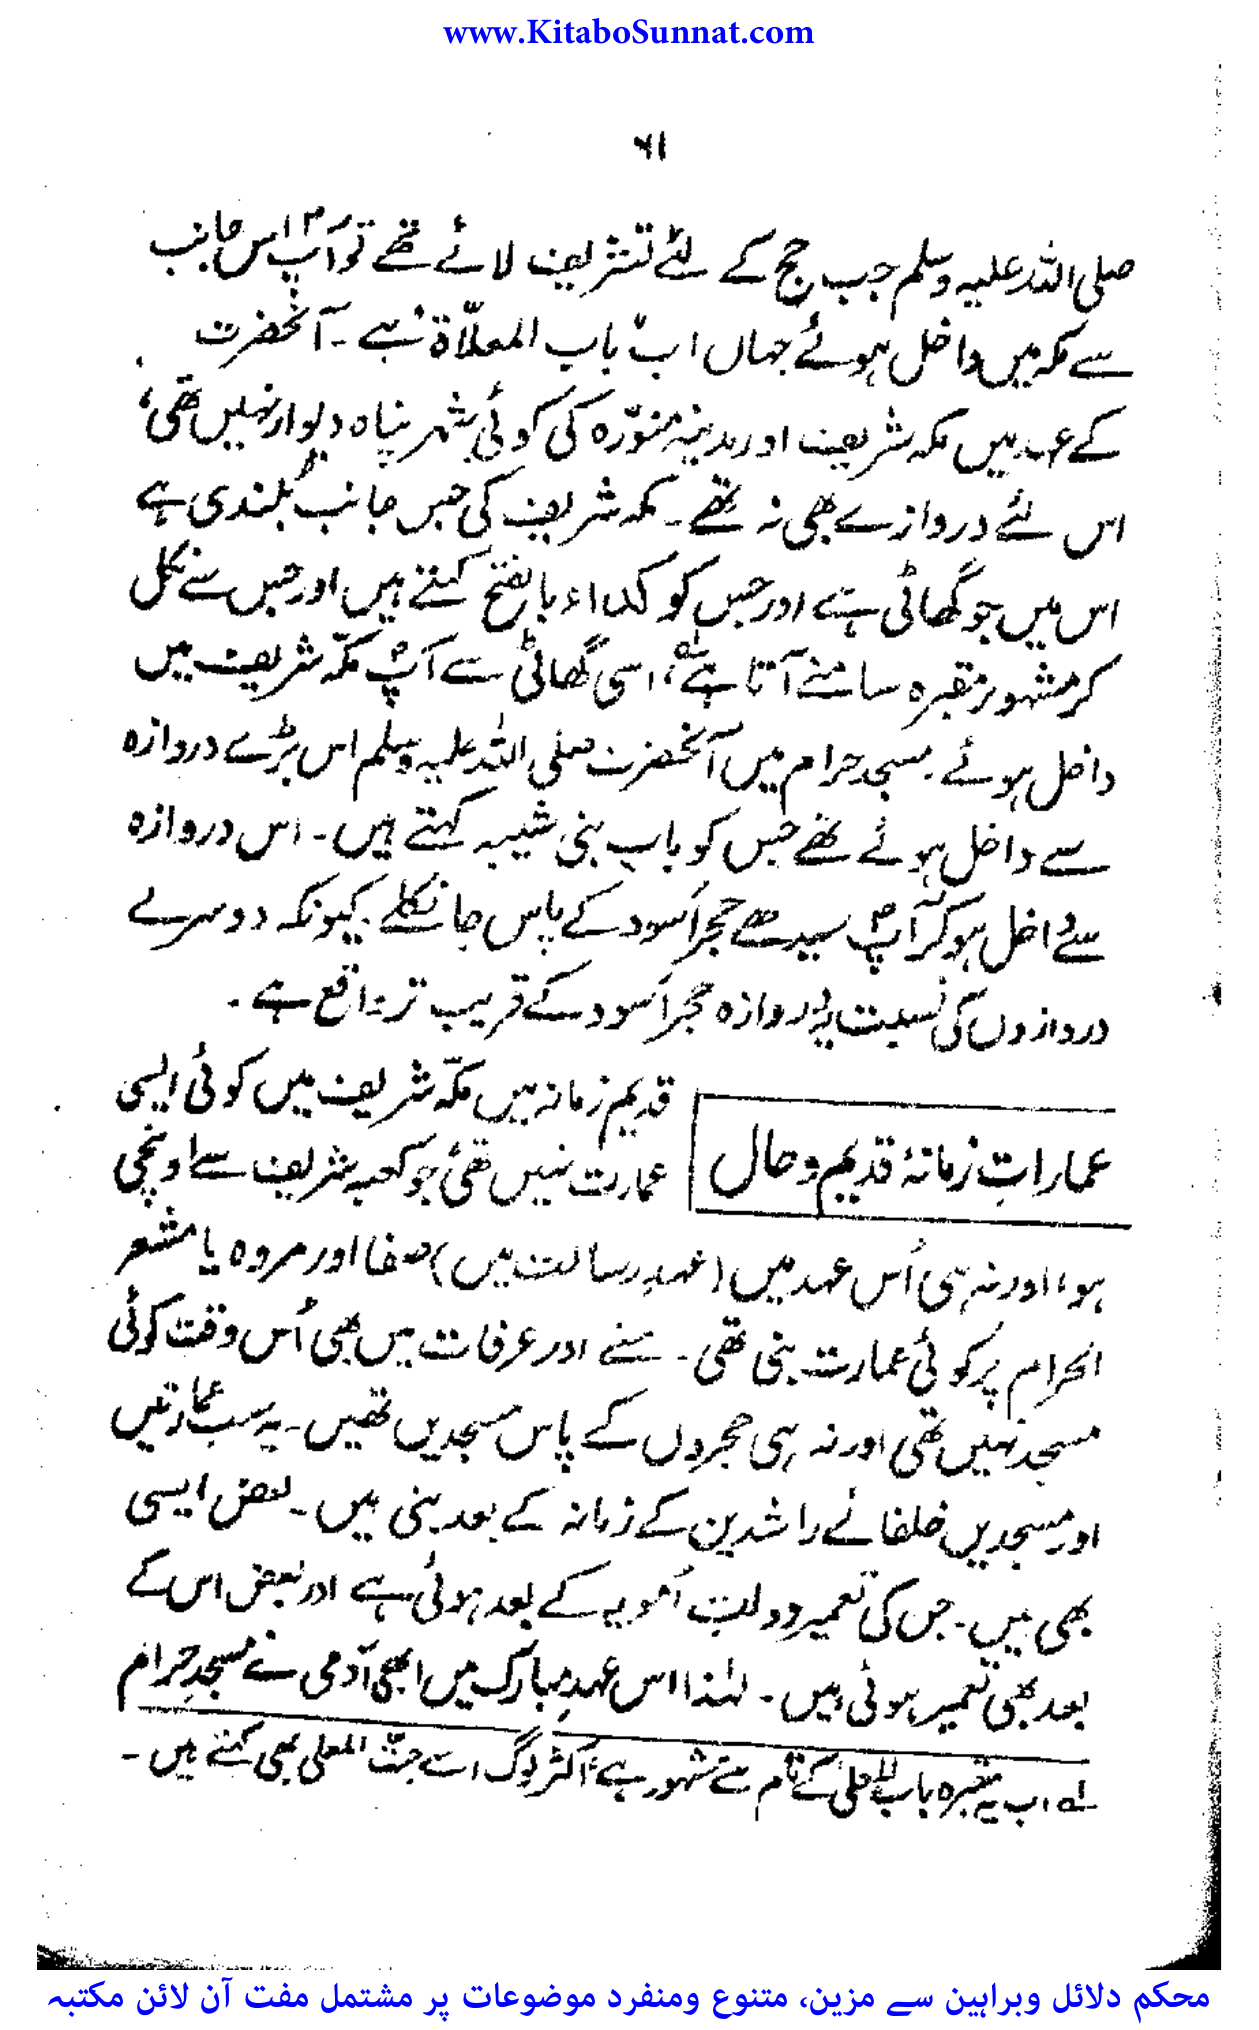 www.KitaboSunnat.com
۶۱
صلی اللہ علیہ وسلم جب حج کے لئے تشریف لائے تھے تو آپؐ اس جانب
سے مکہ میں داخل ہوئے جہاں اب "باب المعلّاۃ" ہے ۔ آنحضرت
کے عہد میں مکہ شریف اور مدینہ منوّرہ کی کوئی شہر پناہ دیوار نہیں تھی،
اس لئے دروازے بھی نہ تھے ۔ مکہ شریف کی جس جانب بُلندی ہے
اس میں جو گھاٹی ہے اور جس کو کداء بالفتح کہتے ہیں اور جس سے نکل
کر مشہور مقبرہ سامنے آتا ہے لہ، اسی گھاٹی سے آپؐ مکّہ شریف میں
داخل ہوئے ۔ مسجد حرام میں آنحضرت صلی اللہ علیہ وسلم اس بڑے دروازہ
سے داخل ہوئے تھے جس کو باب بنی شیبہ کہتے ہیں ۔ اس دروازہ
سے داخل ہو کر آپؐ سیدھے حجر اَسود کے پاس جا نکلے ۔ کیونکہ دوسرے
دروازوں کی نسبت یہ دروازہ حجر اَسود کے قریب تر واقع ہے ۔
عماراتِ زمانۂ قدیم و حال
قدیم زمانہ میں مکّہ شریف میں کوئی ایسی
عمارت نہیں تھی جو کعبہ شریف سے اونچی
ہو، اور نہ ہی اُس عہد میں (عہدِ رسالت میں) صفا اور مروہ یا مشعر
الحرام پر کوئی عمارت بنی تھی ۔ منے اور عرفات میں بھی اُس وقت کوئی
مسجد نہیں تھی اور نہ ہی حجروں کے پاس مسجدیں تھیں ۔ یہ سب عمارتیں
اور مسجدیں خلفائے راشدین کے زمانہ کے بعد بنی ہیں ۔ بعض ایسی
بھی ہیں ۔ جن کی تعمیر دولت اُمویہ کے بعد ہوئی ہے اور بعض اس کے
بعد بھی تعمیر ہوئی ہیں ۔ لہٰذا اس عہدِ مبارک میں ابھی آدمی نے مسجدِ حرام
لہ اب یہ مقبرہ باب المعلی کے نام سے مشہور ہے، اکثر لوگ اسے جنّت المعلی بھی کہتے ہیں ۔
محکم دلائل وبراہین سے مزین، متنوع ومنفرد موضوعات پر مشتمل مفت آن لائن مکتبہ